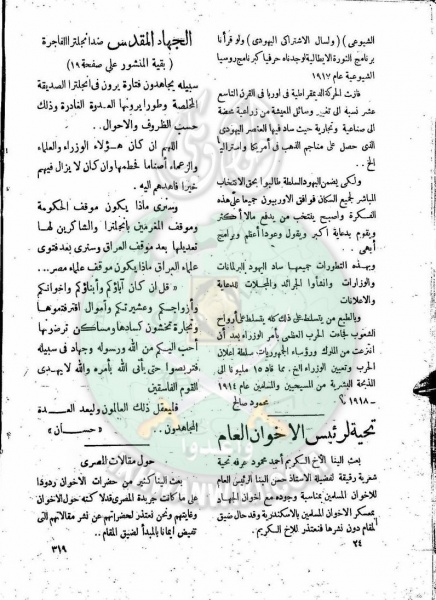 الشيوعى ) ( ولسال الاشتراكى اليهودى ) ولو قرأنا
برنامج الثورة الايطالية لوجدناه حرفيا كبرنامج روسيا
الشيوعية عام ١٩١٧
فازت الحركة الديمقراطية فى اوربا فى القرن التاسع
عشر نسبه الى تغير وسائل المعيشة من زراعية محضة
الى صناعية وتجارية حيث ساد فيها العنصر اليهودى
الذى حصل على مناجم الذهب فى أمريكا واستراليا
الخ . .
ولكى يضمن اليهود السلطة طالبوا بحق الانتخاب
المباشر لجميع السكان فوافق الاوربيون جميعا على هذه
الفكرة واصبح ينتخب من يدفع مالا أكثر
ويقوم بدعاية اكبر ويقول وعودا أعظم وبرامج
أبهى .
وبهذه التطورات جميعها ساد اليهود البرلمانات
والوزارات وانشأوا الجرائد والمجلات للدعاية
والاعلانات
وبالطبع من يتسلط على ذلك كله يتسلط على أرواح
الشعوب فجاءت الحرب العظمى بأمر الوزراء بعد أن
انتزعت من الملوك ورؤساء الجمهوريات سلطة اعلان
الحرب وتعيين الوزراء الخ . مما قاد ١٥ مليونا الى
الذبحة البشرية من المسيحيين والمسلمين عام ١٩١٤
– ١٩١٨
محمود صالح
تحية لرئيس الاخوان العام
بعث الينا الأخ الكريم أحمد محمود عرفه تحية
شعرية رقيقة لفضيلة الاستاذ حسن البنا الرئيس العام
للاخوان المسلمين بمناسبة وجوده مع اخوان الجهاد
بمعسكر الاخوان المسلمين بالاسكندرية وقد حال ضيق
المقام دون نشرها فنعتذر للاخ الكريم .
٢٤
الجهاد المقدس ضد انجلترا الفاجرة
( بقية المنشور على صفحة ١٩ )
سبيله يجاهدون فتارة يرون فى انجلترا الصديقة
المخلصة وطورا يرونها العدوة الغادرة وذلك
حسب الظروف والاحوال . .
اللهم ان كان هؤلاء الوزراء والعلماء
والزعماء أصناما فحطمها وان كان لا يزال فيهم
خيرا فاهدهم اليه .
وسنرى ماذا يكون موقف الحكومة
وموقف المغرمين بانجلترا والشاكرين لها
تعديلها بعد موقف العراق وسنرى بعد فتوى
علماء العراق ماذا يكون موقف علماء مصر ...
« قل ان كان آباؤكم وأبناؤكم واخوانكم
وأزواجكم وعشيرتكم وأموال اقترفتموها
وتجارة تخشون كسادها ومساكن ترضونها
أحب اليكم من الله ورسوله وجهاد فى سبيله
فتربصوا حتى يأتى الله بأمره والله لا يهدى
القوم الفاسقين
فليعقل ذلك العالمون وليعد العدة
المجاهدون . .
« حسان »
حول مقالات المصرى
بعث الينا كثير من حضرات الاخوان ردودا
على ما كانت جريدة المصرى قد لاكته حول الاخوان
وغايتهم ونحن نعتذر لحضراتهم عن نشر مقالاتهم التى
تفيض ايمانا بالمبدأ لضيق المقام . .
٣١٩